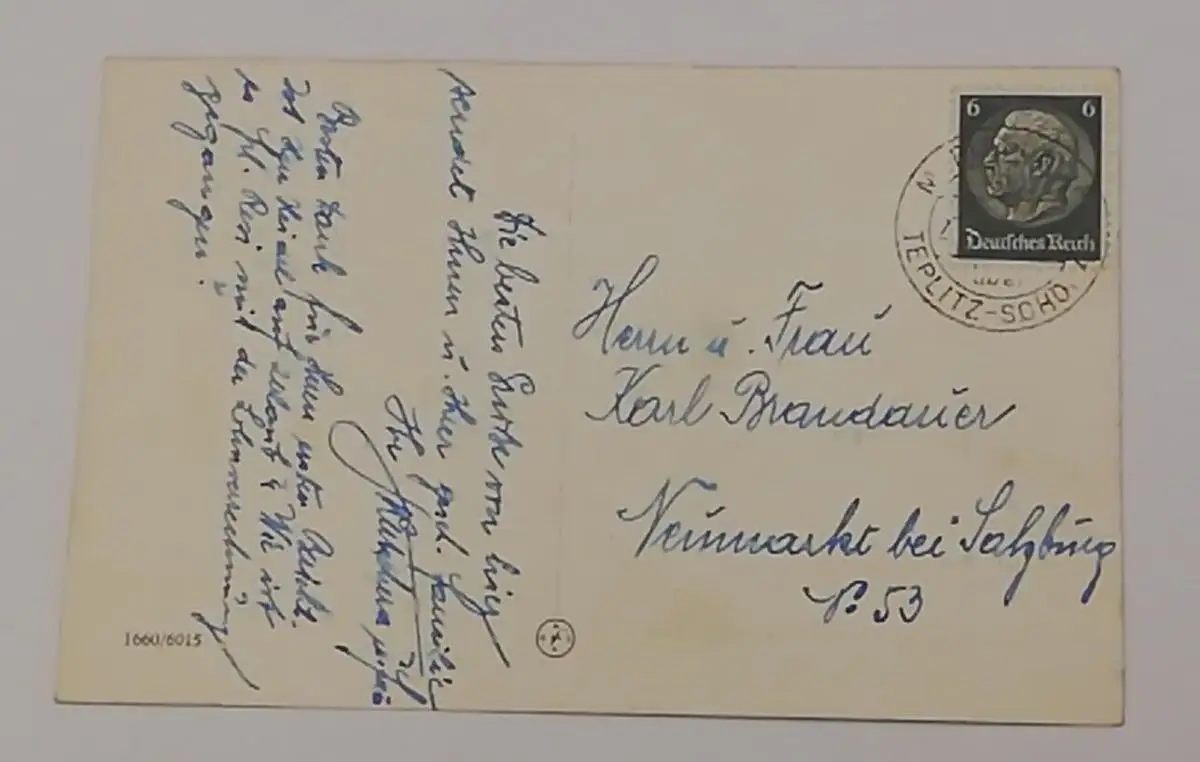 Die besten Grüße von hier
sendet Ihnen u. Ihrer gesch. Familie
Ihr
Besten Dank für Ihren ersten Bericht.
Ist Herr auf Urlaub? Wie ist
es Frl. Resi mit der Lohnverrechnung
gegangen?
6 6
Deutsches Reich
TEPLITZ-SCHÖ
Herrn u. Frau
Karl Brandauer
Neumarkt bei Salzburg
N° 53
1660/6015